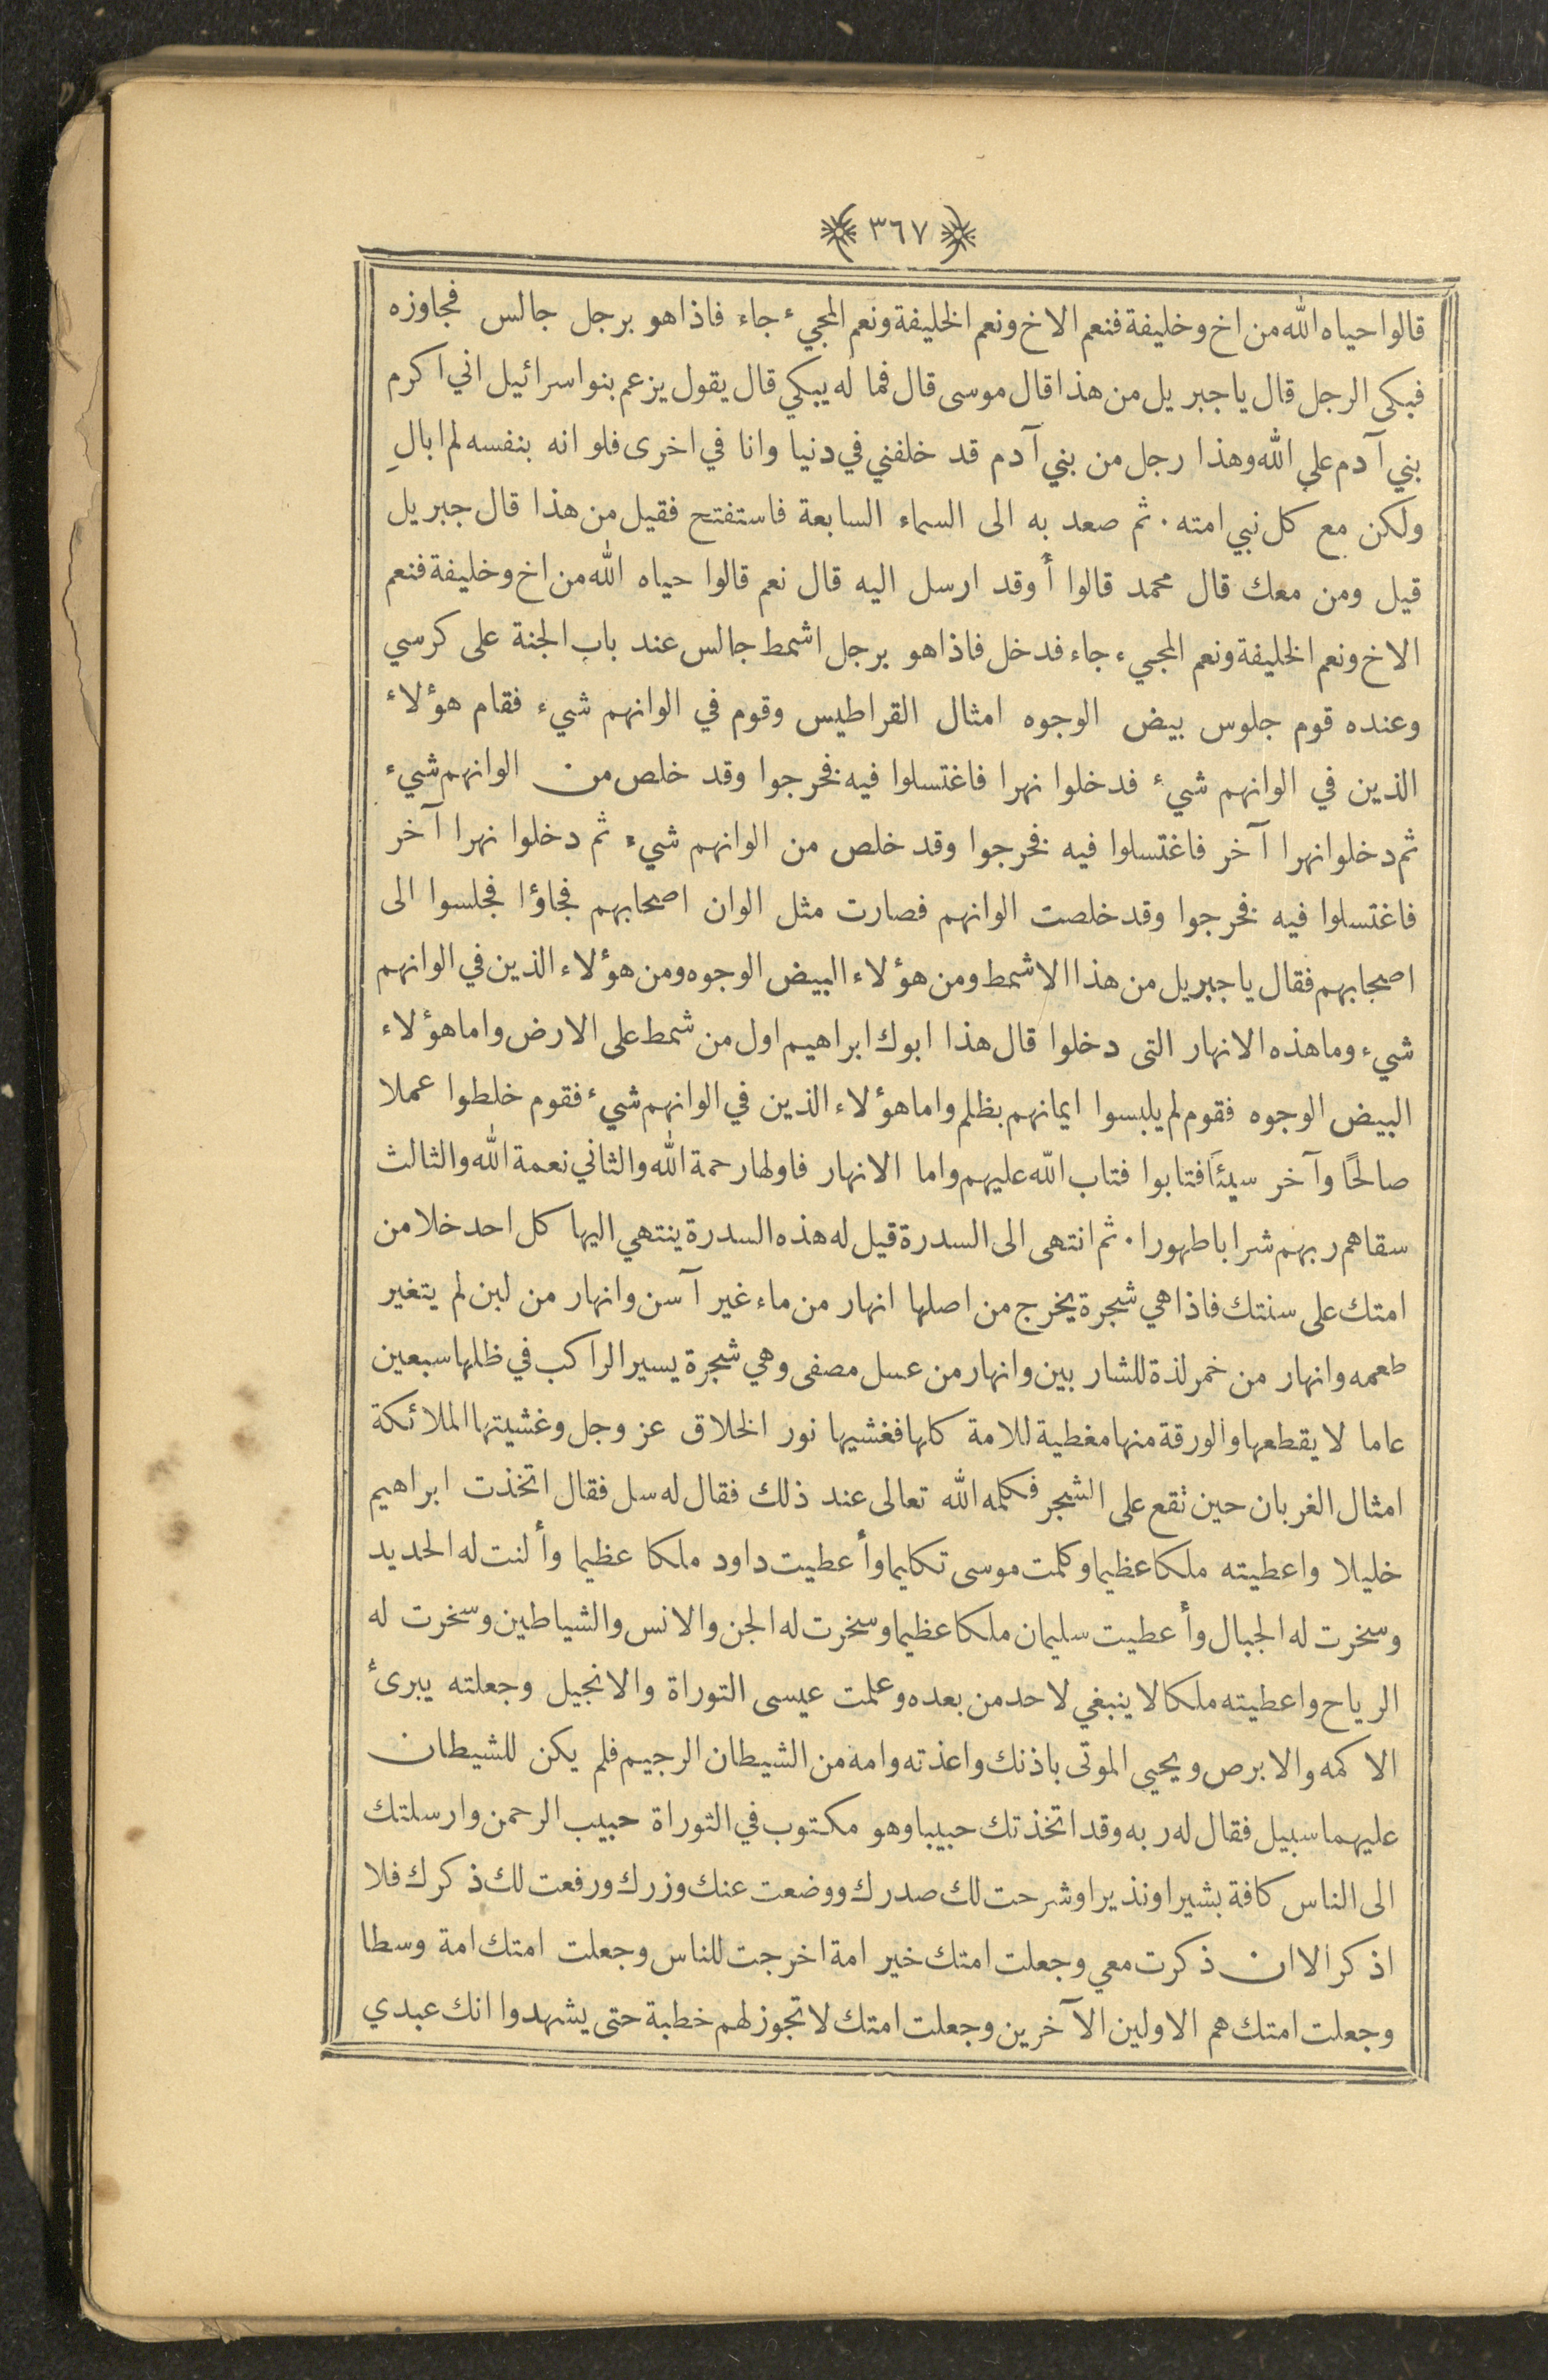 ٣٦٧
قالوا حياه الله من اخ وخليفة فنعم الاخ ونعم الخليفة ونعم المجيء جاء فاذا هو برجل جالس فجاوزه
فبكى الرجل قال يا جبريل من هذا قال موسى قال فما له يبكي قال يقول يزعم بنو اسرائيل اني اكرم
بني آدم على الله وهذا رجل من بني آدم قد خلفني في دنيا وانا في اخرى فلو انه بنفسه لم ابالِ
ولكن مع كل نبي امته . ثم صعد به الى السماء السابعة فاستفتح فقيل من هذا قال جبريل
قيل ومن معك قال محمد قالوا أوقد ارسل اليه قال نعم قالوا حياه الله من اخ وخليفة فنعم
الاخ ونعم الخليفة ونعم المجيء جاء فدخل فاذا هو برجل اشمط جالس عند باب الجنة على كرسي
وعنده قوم جلوس بيض الوجوه امثال القراطيس وقوم في الوانهم شيء فقام هؤلاء
الذين في الوانهم شيء فدخلوا نهرا فاغتسلوا فيه فخرجوا وقد خلص من الوانهم شيء
ثم دخلوا نهرا آخر فاغتسلوا فيه فخرجوا وقد خلص من الوانهم شيء ثم دخلوا نهرا آخر
فاغتسلوا فيه فخرجوا وقد خلصت الوانهم فصارت مثل الوان اصحابهم فجاؤا فجلسوا الى
اصحابهم فقال يا جبريل من هذا الاشمط ومن هؤلاء البيض الوجوه ومن هؤلاء الذين في الوانهم
شيء وما هذه الانهار التى دخلوا قال هذا ابوك ابراهيم اول من شمط على الارض واما هؤلاء
البيض الوجوه فقوم لم يلبسوا ايمانهم بظلم واما هؤلاء الذين في الوانهم شيء فقوم خلطوا عملا
صالحًا وآخر سيئًا فتابوا فتاب الله عليهم واما الانهار فاولها رحمة الله والثاني نعمة الله والثالث
سقاهم ربهم شرابا طهورا . ثم انتهى الى السدرة قيل له هذه السدرة ينتهي اليها كل احد خلا من
امتك على سنتك فاذا هي شجرة يخرج من اصلها انهار من ماء غير آسن وانهار من لبن لم يتغير
طعمه وانهار من خمر لذة للشاربين وانهار من عسل مصفى وهي شجرة يسير الراكب في ظلها سبعين
عاما لا يقطعها والورقة منها مغطية للامة كلها فغشيها نور الخلاق عز وجل وغشيتها الملائكة
امثال الغربان حين تقع على الشجر فكلمه الله تعالى عند ذلك فقال له سل فقال اتخذت ابراهيم
خليلا واعطيته ملكا عظيما وكلمت موسى تكليما وأعطيت داود ملكا عظيما وألنت له الحديد
وسخرت له الجبال وأعطيت سليمان ملكا عظيما وسخرت له الجن والانس والشياطين وسخرت له
الرياح واعطيته ملكا لا ينبغي لاحد من بعده وعلمت عيسى التوراة والانجيل وجعلته يبرئ
الاكمه والابرص ويحيي الموتى باذنك واعذته وامه من الشيطان الرجيم فلم يكن للشيطان
عليهما سبيل فقال له ربه وقد اتخذتك حبيبا وهو مكتوب في التوراة حبيب الرحمن وارسلتك
الى الناس كافة بشيرا ونذيرا وشرحت لك صدرك ووضعت عنك وزرك ورفعت لك ذكرك فلا
اذكر الا ان ذكرت معي وجعلت امتك خير امة اخرجت للناس وجعلت امتك امة وسطا
وجعلت امتك هم الاولين الآخرين وجعلت امتك لا تجوز لهم خطبة حتى يشهدوا انك عبدي